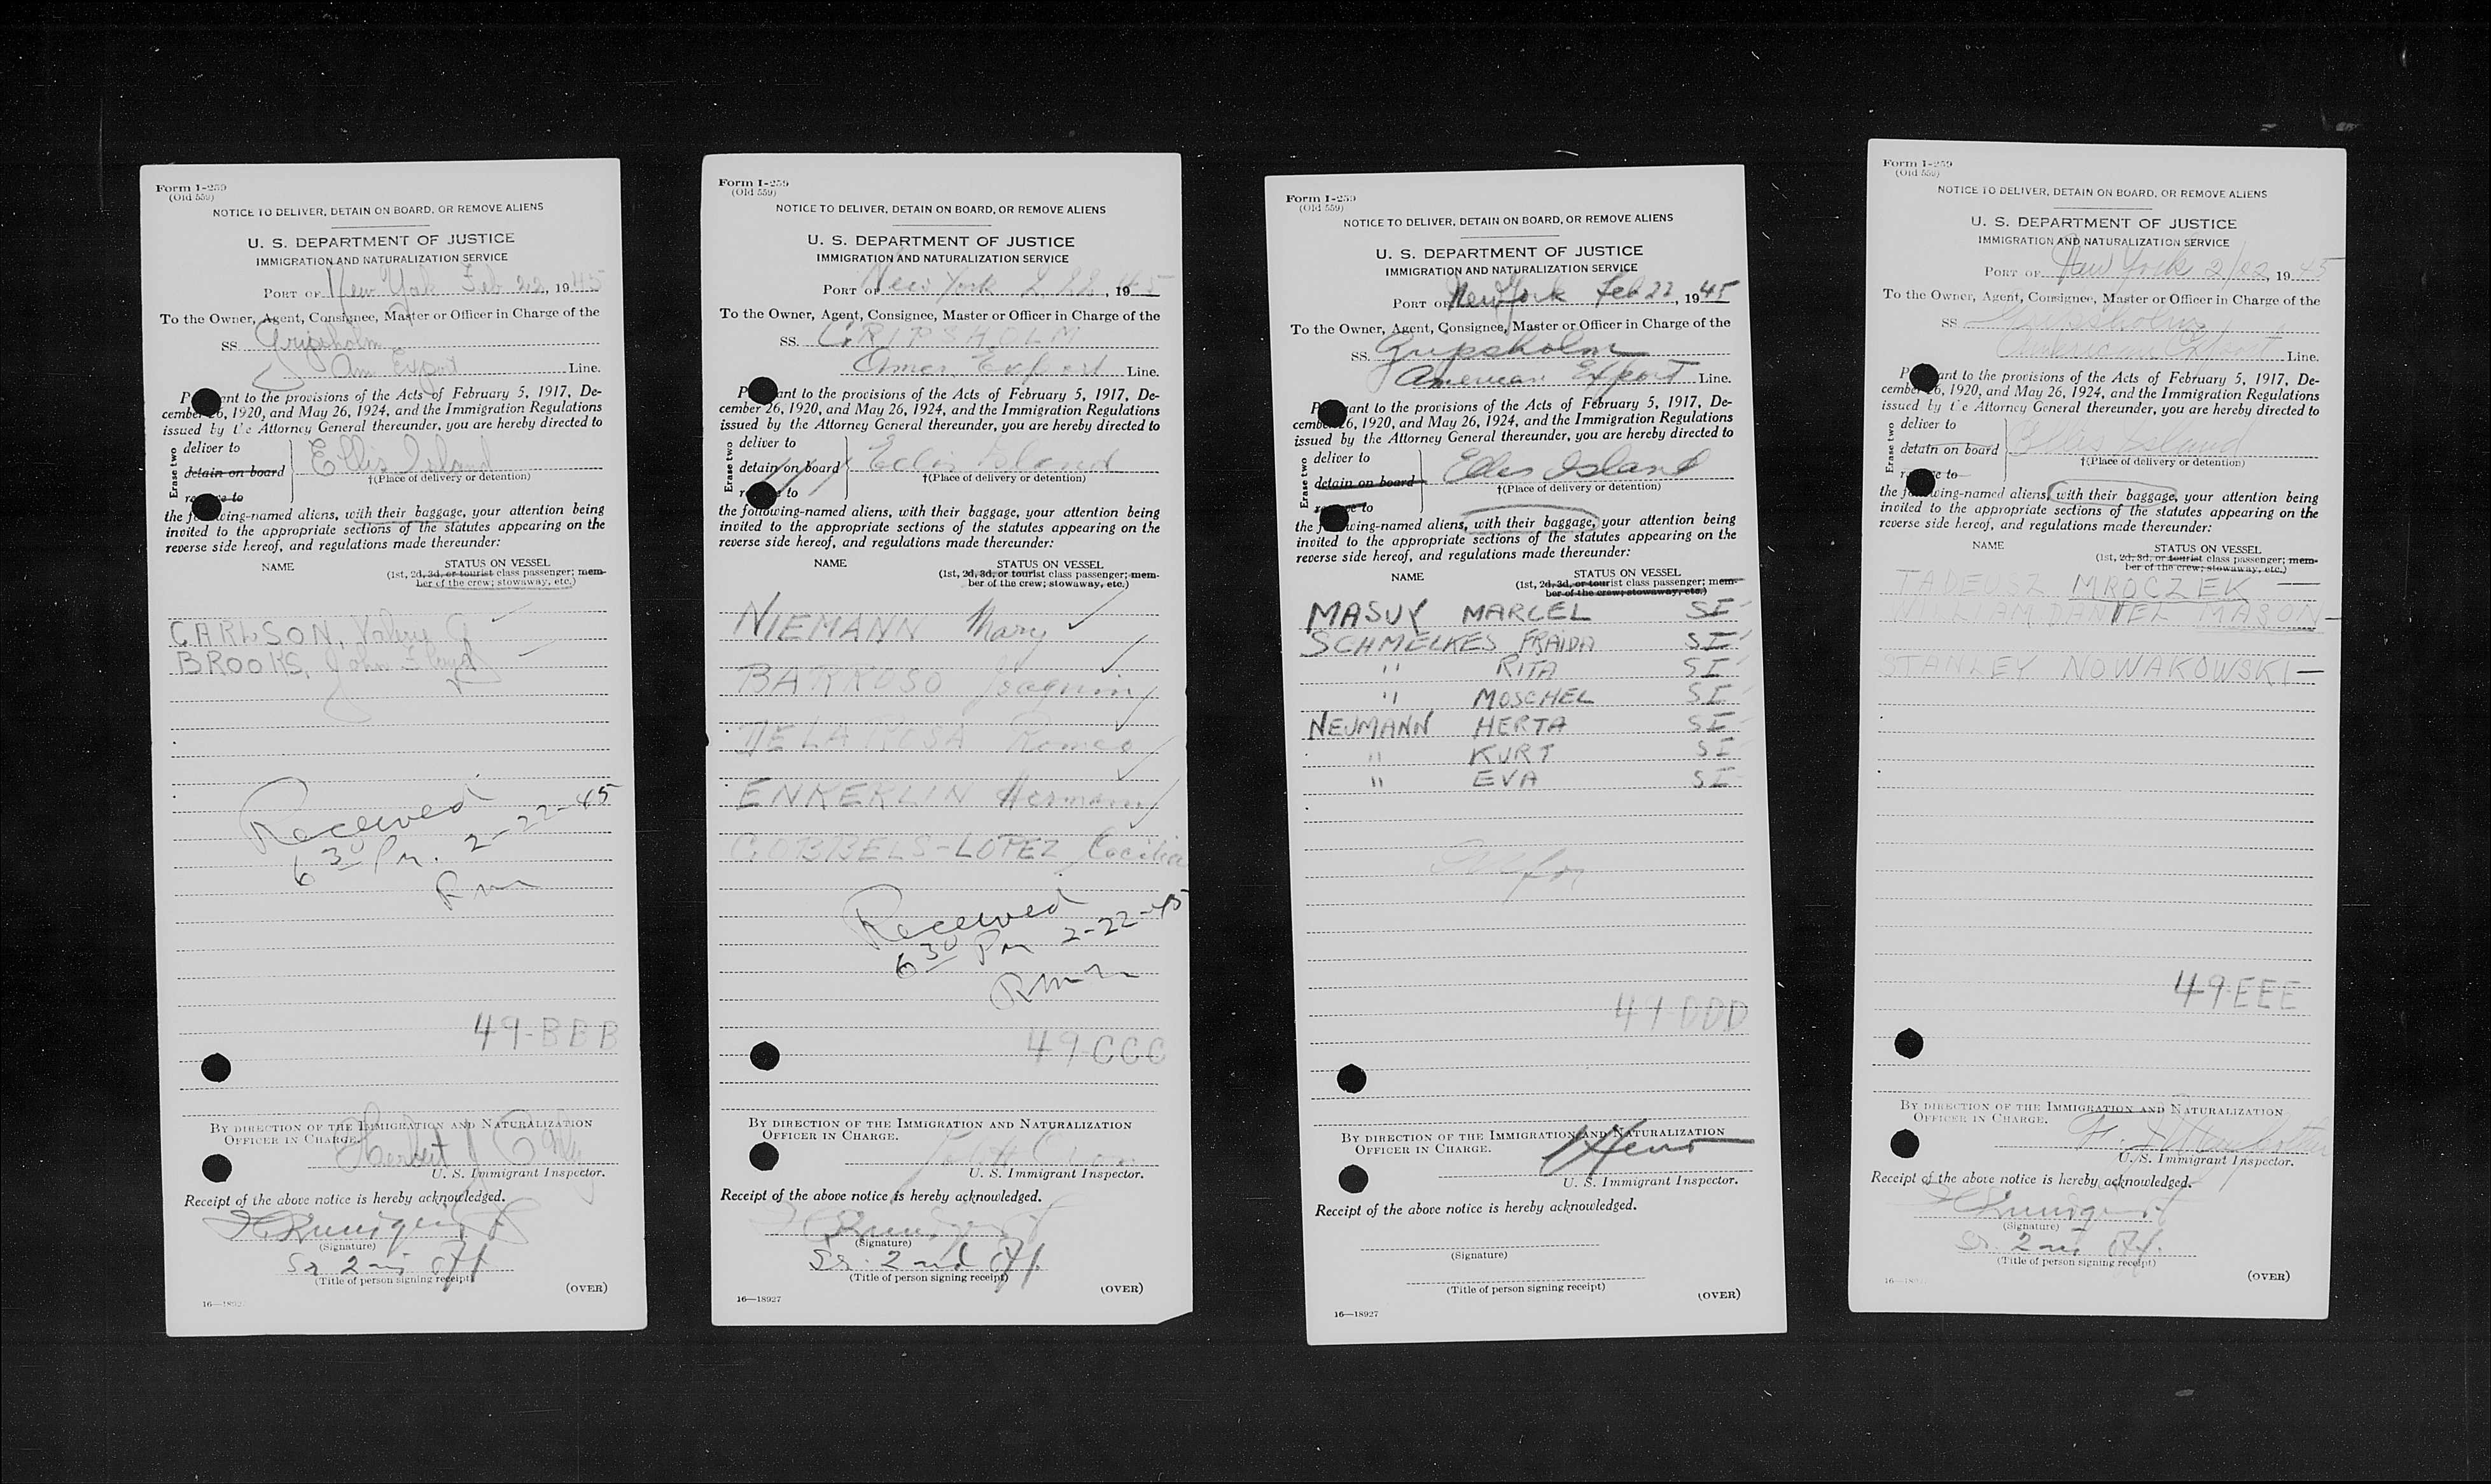 Form I-259
(Old 559)
NOTICE TO DELIVER, DETAIN ON BOARD, OR REMOVE ALIENS
U. S. DEPARTMENT OF JUSTICE
IMMIGRATION AND NATURALIZATION SERVICE
PORT OF New York Feb 22, 1945
To the Owner, Agent, Consignee, Master or Officer in Charge of the
SS. Gripsholm
Am Export Line.
P ant to the provisions of the Acts of February 5, 1917, De-
cember 26, 1920, and May 26, 1924, and the Immigration Regulations
issued by the Attorney General thereunder, you are hereby directed to
Erase two
deliver to
detain on board
re e to
Ellis Island
†(Place of delivery or detention)
the f wing-named aliens, with their baggage, your attention being
invited to the appropriate sections of the statutes appearing on the
reverse side hereof, and regulations made thereunder:
NAME STATUS ON VESSEL
(1st, 2d, 3d, or tourist class passenger; mem-
ber of the crew; stowaway, etc.)
CARLSON, Valery G
BROOKS, John Floyd
Received
6 30 Pm. 2-22-45
Rm
49-BBB
BY DIRECTION OF THE IMMIGRATION AND NATURALIZATION
OFFICER IN CHARGE.
Herbert J
U. S. Immigrant Inspector.
Receipt of the above notice is hereby acknowledged.
(Signature)
Sr 2nd Off
(Title of person signing receipt)
(OVER)
16—18927
Form I-259
(Old 559)
NOTICE TO DELIVER, DETAIN ON BOARD, OR REMOVE ALIENS
U. S. DEPARTMENT OF JUSTICE
IMMIGRATION AND NATURALIZATION SERVICE
PORT OF New York 2 22, 1945
To the Owner, Agent, Consignee, Master or Officer in Charge of the
SS. GRIPSHOLM
Amer. Export Line.
P ant to the provisions of the Acts of February 5, 1917, De-
cember 26, 1920, and May 26, 1924, and the Immigration Regulations
issued by the Attorney General thereunder, you are hereby directed to
Erase two
deliver to
detain on board
r to
Ellis Island
†(Place of delivery or detention)
the following-named aliens, with their baggage, your attention being
invited to the appropriate sections of the statutes appearing on the
reverse side hereof, and regulations made thereunder:
NAME STATUS ON VESSEL
(1st, 2d, 3d, or tourist class passenger; mem-
ber of the crew; stowaway, etc.)
NIEMANN Mary
BARROSO Joaquin
DE LA ROSA Romeo
ENKEKLIN Hermann
GOBBELS-LOPEZ, Cecilia
Received
6 30 Pm 2-22-45
Rmm
49-CCC
BY DIRECTION OF THE IMMIGRATION AND NATURALIZATION
OFFICER IN CHARGE.
U. S. Immigrant Inspector.
Receipt of the above notice is hereby acknowledged.
(Signature)
Sr. 2nd Off.
(Title of person signing receipt)
(OVER)
16—18927
Form I-259
(Old 559)
NOTICE TO DELIVER, DETAIN ON BOARD, OR REMOVE ALIENS
U. S. DEPARTMENT OF JUSTICE
IMMIGRATION AND NATURALIZATION SERVICE
PORT OF New York Feb 22, 1945
To the Owner, Agent, Consignee, Master or Officer in Charge of the
SS. Gripsholm
American Export Line.
P uant to the provisions of the Acts of February 5, 1917, De-
cember 26, 1920, and May 26, 1924, and the Immigration Regulations
issued by the Attorney General thereunder, you are hereby directed to
Erase two
deliver to
detain on board
re e to
Ellis Island
†(Place of delivery or detention)
the f wing-named aliens, with their baggage, your attention being
invited to the appropriate sections of the statutes appearing on the
reverse side hereof, and regulations made thereunder:
NAME STATUS ON VESSEL
(1st, 2d, 3d, or tourist class passenger; mem-
ber of the crew; stowaway, etc.)
MASUY MARCEL SI
SCHMELKES FRAIDA SI
" RITA SI
" MOSCHEL SI
NEUMANN HERTA SI
" KURT SI
" EVA SI
49-DDD
BY DIRECTION OF THE IMMIGRATION AND NATURALIZATION
OFFICER IN CHARGE.
U. S. Immigrant Inspector.
Receipt of the above notice is hereby acknowledged.
(Signature)
(Title of person signing receipt)
(OVER)
16—18927
Form I-259
(Old 559)
NOTICE TO DELIVER, DETAIN ON BOARD, OR REMOVE ALIENS
U. S. DEPARTMENT OF JUSTICE
IMMIGRATION AND NATURALIZATION SERVICE
PORT OF New York 2/22, 1945
To the Owner, Agent, Consignee, Master or Officer in Charge of the
SS Gripsholm
American Export Line.
P ant to the provisions of the Acts of February 5, 1917, De-
cember 26, 1920, and May 26, 1924, and the Immigration Regulations
issued by the Attorney General thereunder, you are hereby directed to
Erase two
deliver to
detain on board
re e to
Ellis Island
†(Place of delivery or detention)
the f wing-named aliens, with their baggage, your attention being
invited to the appropriate sections of the statutes appearing on the
reverse side hereof, and regulations made thereunder:
NAME STATUS ON VESSEL
(1st, 2d, 3d, or tourist class passenger; mem-
ber of the crew; stowaway, etc.)
TADEUSZ MROCZEK
MASON
STANLEY NOWAKOWSKI
49 EEE
BY DIRECTION OF THE IMMIGRATION AND NATURALIZATION
OFFICER IN CHARGE.
U. S. Immigrant Inspector.
Receipt of the above notice is hereby acknowledged.
(Signature)
Sr. 2nd Off.
(Title of person signing receipt)
(OVER)